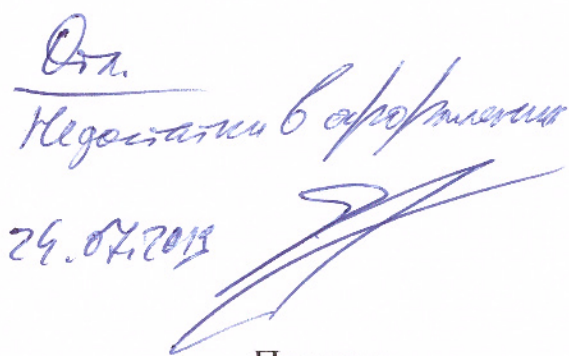 Отл.
Недостатки в оформлении
24.07.2019
П